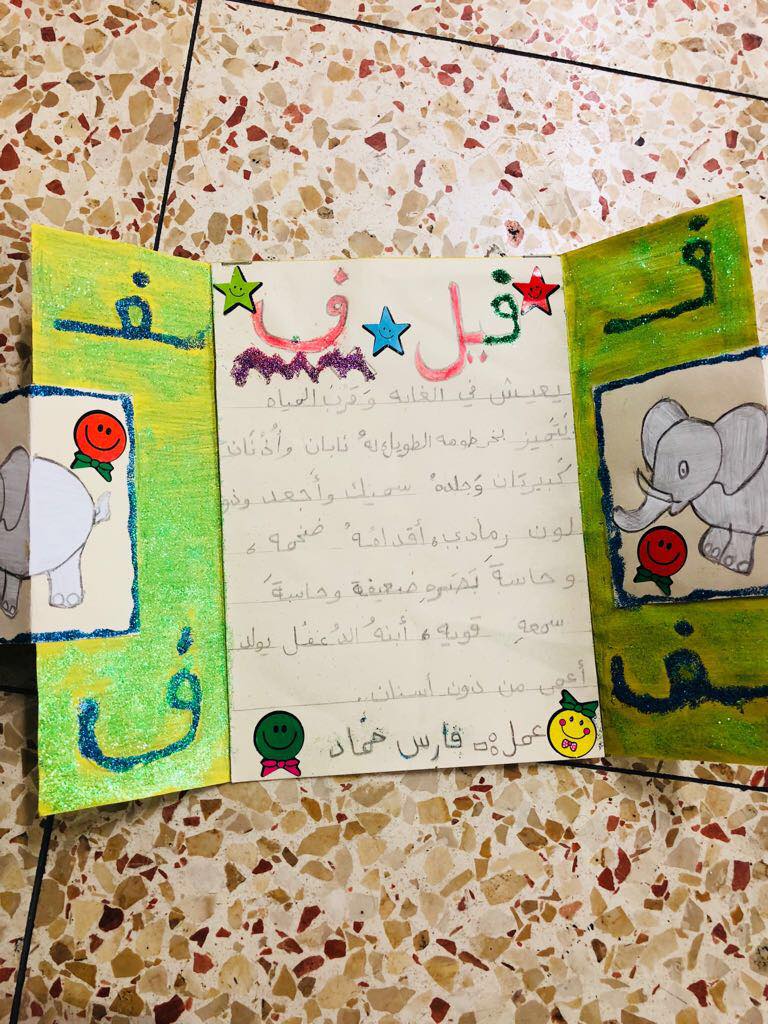 فيل ف
يعيش في الغابه وَقرب المياه
تتَميز بخرطومه الطويل لهُ نابان وأُذنَان
كَبيرتان وَجلدهُ سميك وأَجعد وذو
لون رمادي، أقدامُهُ ضخمه،
وحاسةَ بَصَرهِ ضعيفة وحاسةَ
سمعهِ قويه، أبنهُ الدُغفُل يولد
أعمى من دون أسنان.
عمل: فارس حمّاد
ف
ف
ف
ف